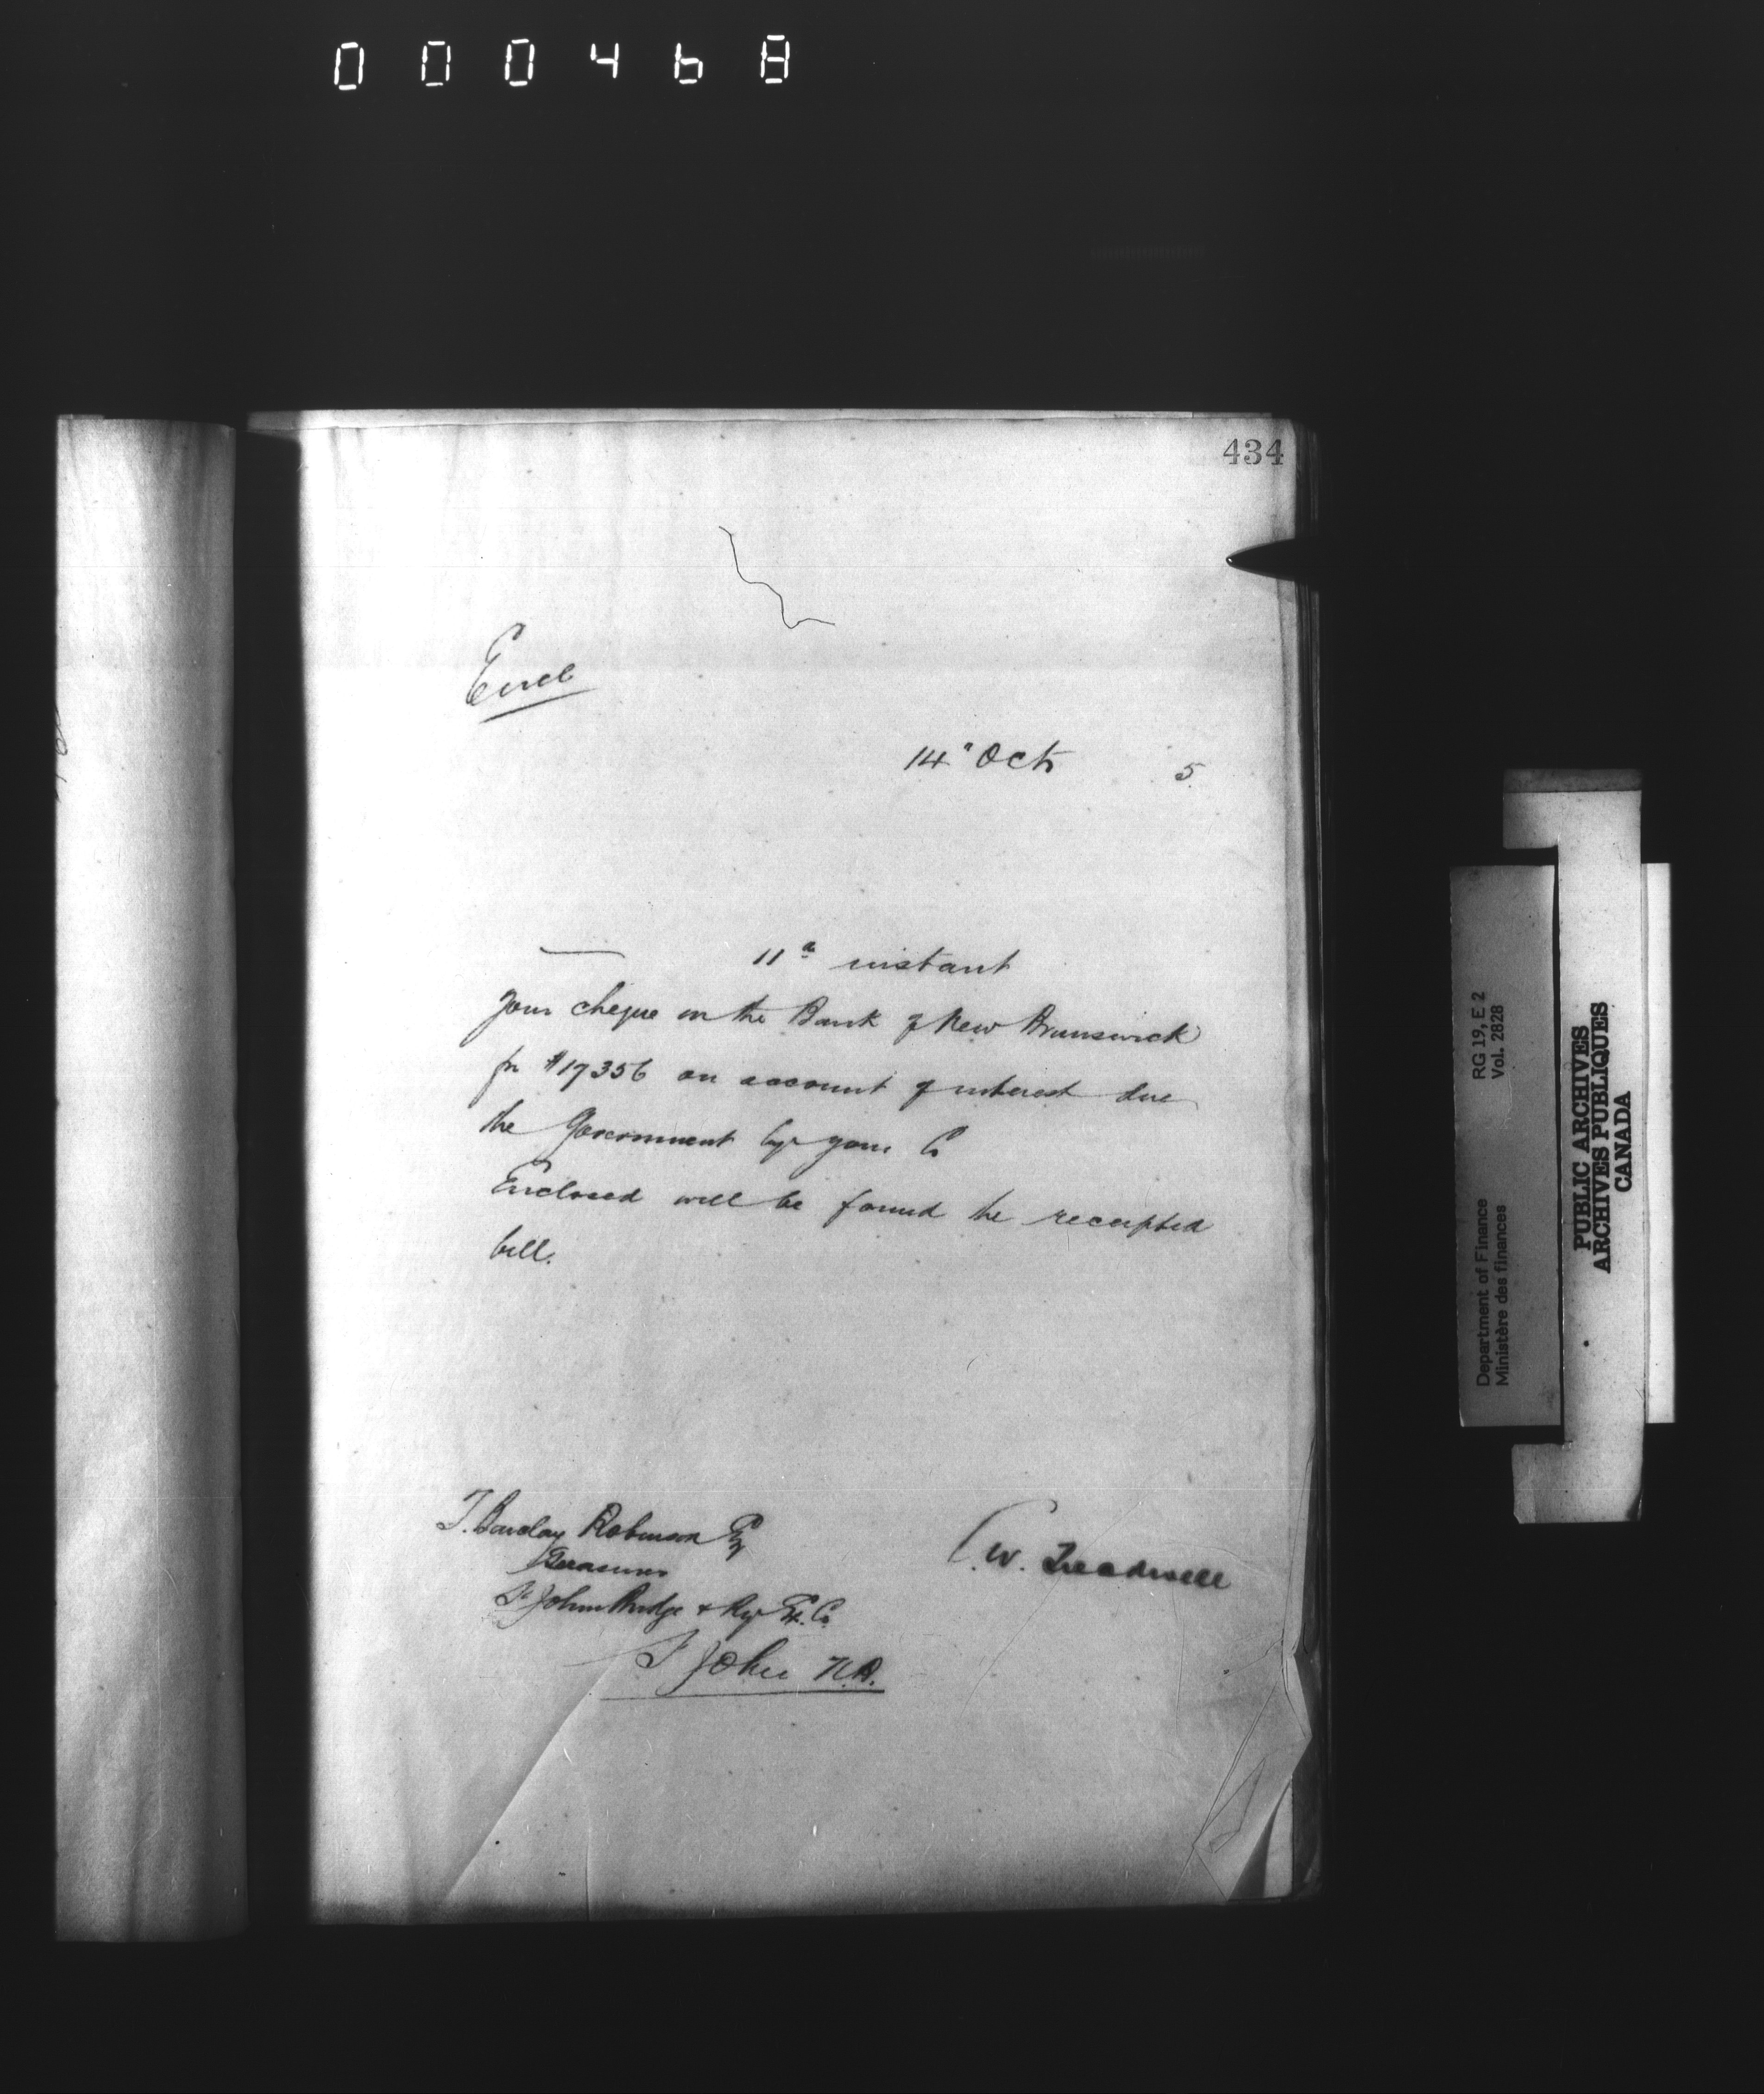 000468
434
Encl
14" Oct 5
11th instant
your cheque on the Bank of New Brunswick
for $17356 on account of interest due
the Government by your Co
Enclosed will be found the receipted
bill.
T. Barclay Robinson Esq
Treasurer
St John Bridge & Ry Ex. Co
St John N.B.
C. W. Treadwell
RG 19, E 2
Vol. 2828
Department of Finance
Ministère des finances
PUBLIC ARCHIVES
ARCHIVES PUBLIQUES
CANADA